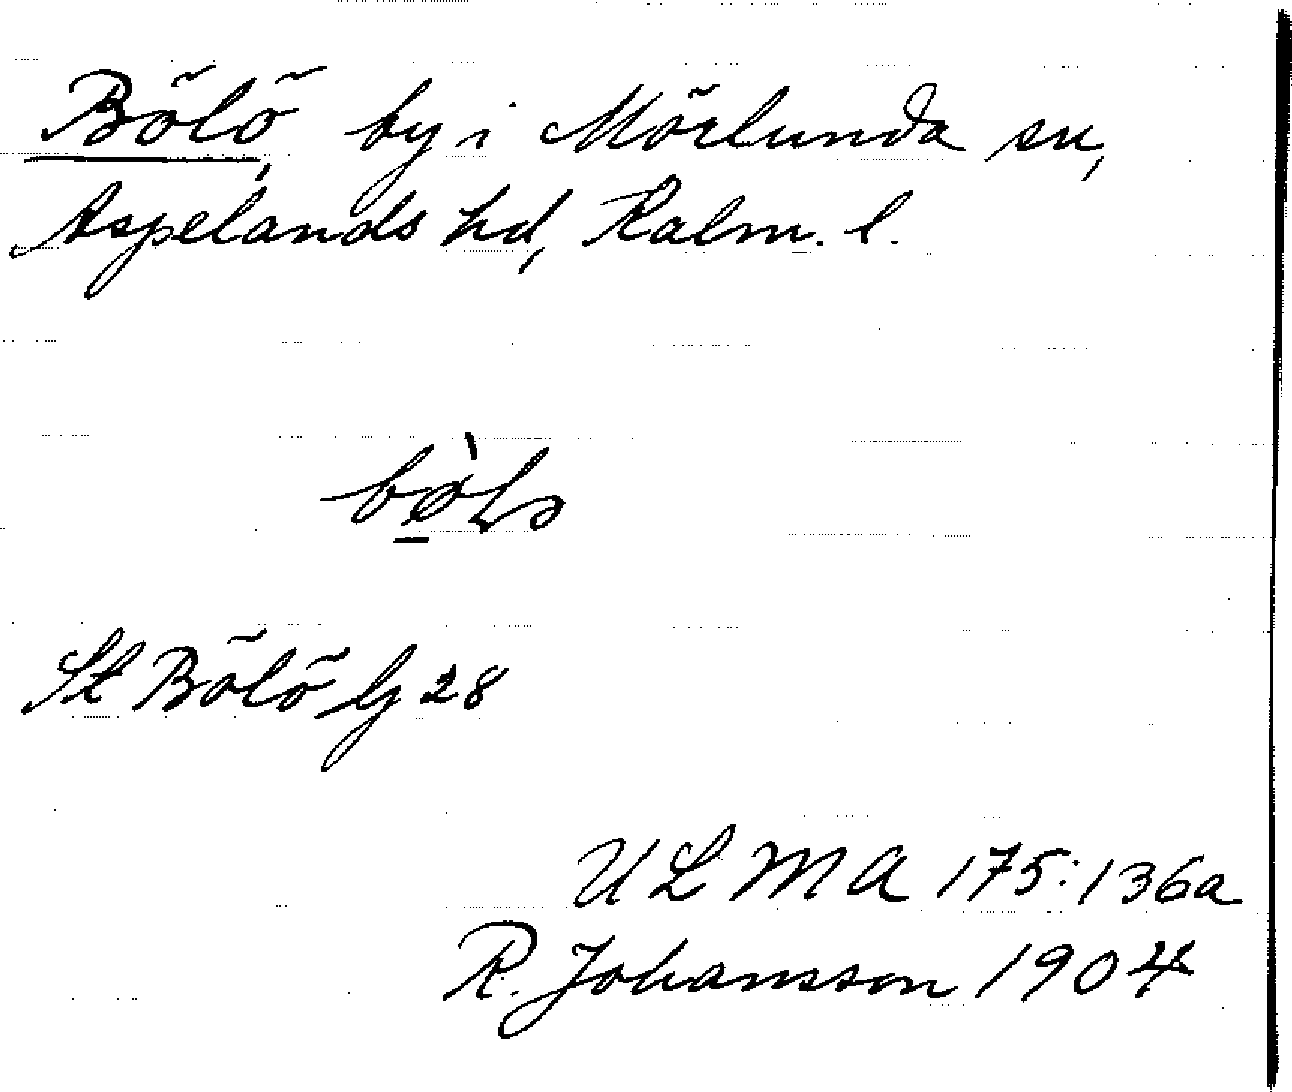 Bölö, by i Mörlunda sn,
Aspelands hd, Kalm. l.
St Bölö bj 28
ULMA 175:136a
R. Johansson 1904